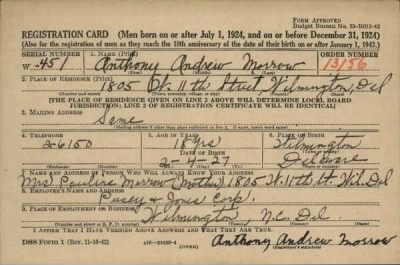 FORM APPROVED
Budget Bureau No. 33-R012-42
REGISTRATION CARD (Men born on or after July 1, 1924, and on or before December 31, 1924)
(Also for the registration of men as they reach the 18th anniversary of the date of their birth on or after January 1, 1943.)
SERIAL NO. 1. NAME (Print) ORDER NO.
W-451 Anthony Andrew Morrow 13156
(First) (Middle) (Last)
2. PLACE OF RESIDENCE (Print)
1805 11th Street, Wilmington, Del
(Number and street) (Town, township, village, or city) (County) (State)
[THE PLACE OF RESIDENCE GIVEN ON LINE 2 ABOVE WILL DETERMINE LOCAL BOARD
JURISDICTION; LINE 2 OF REGISTRATION CERTIFICATE WILL BE IDENTICAL]
3. MAILING ADDRESS
Same
[Mailing address if other than place indicated on line 2. If same, insert word same]
4. TELEPHONE 5. AGE IN YEARS 6. PLACE OF BIRTH
2-6150 18 yrs Wilmington
DATE OF BIRTH
2-4-27 Delaware
7. NAME AND ADDRESS OF PERSON WHO WILL ALWAYS KNOW YOUR ADDRESS
Mrs Pauline Morrow (Mother) 1805 W. 11th St. Wil. Del
8. EMPLOYER'S NAME AND ADDRESS
Pusey & Jones Corp.
9. PLACE OF EMPLOYMENT OR BUSINESS
Wilmington, N.C. Del.
(Number and street or R. F. D. number) (Town) (County) (State)
I AFFIRM THAT I HAVE VERIFIED ABOVE ANSWERS AND THAT THEY ARE TRUE.
DSS Form 1 (Rev. 11-16-42) (OVER) Anthony Andrew Morrow
(Registrant's signature)